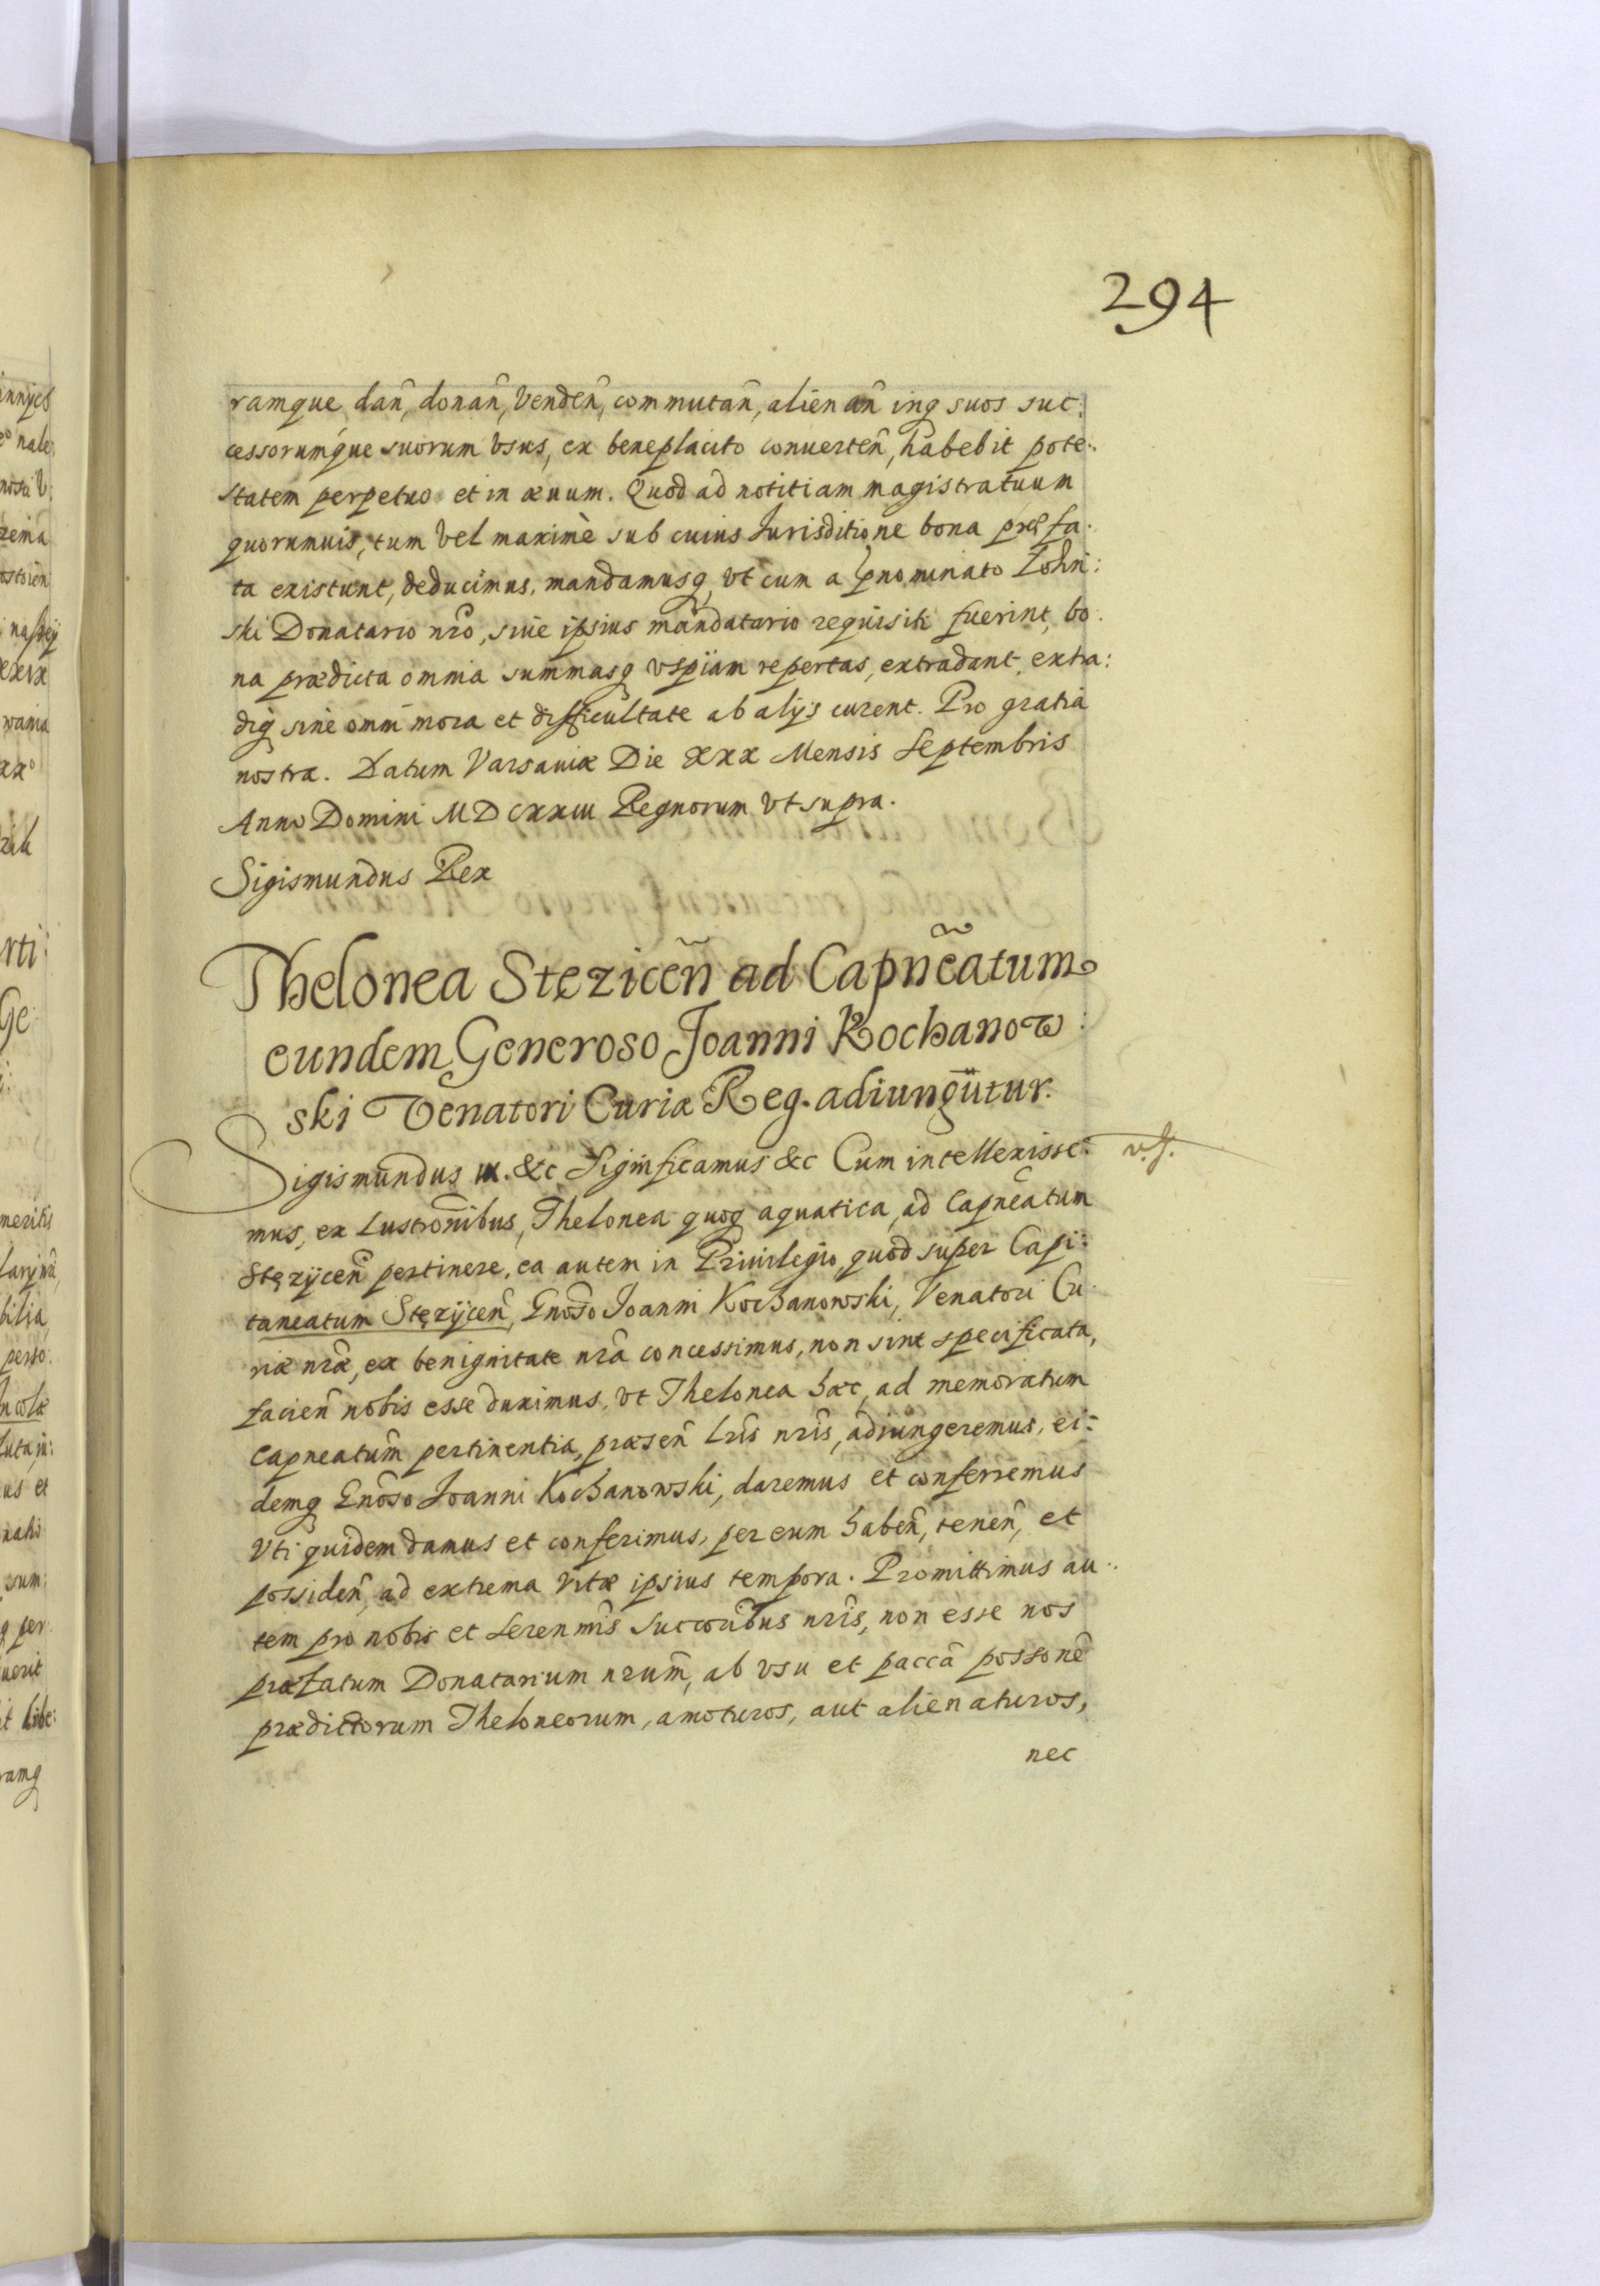 294
ramque dan̄, donan̄, Venden̄, commutan̄, alienan̄ inq suos suc:
cessorumque suorum vsus, ex beneplacito conuerten̄, habebit pote:
statem perpetuo et in æuum. Quod ad notitiam magistratuum
quorumuis, tum Vel maximè sub cuius Jurisditione bona præfa:
ta existunt, deducimus, mandamusq, vt cum a pnominato
ski Donatario nr̄o, siue ipsius mandatario requisiti fuerint, bo:
na prædicta omnia summasq vspiam repertas, extradant, extra:
diq sine omni mora et difficultate ab alijs curent. Pro gratia
nostra. Datum Varsauiæ Die XXX Mensis Septembris
Anno Domini MDCXXIII Regnorum Vt supra.
Sigismundus Rex
Thelonea Stęzicen̄ ad Capn̄eatum
eundem Generoso Joanni Kochanow:
ski Venatori Curiæ Reg. adiungūtur.
Sigismundus III. &c Significamus &c Cum intellexisse:
mus, ex Lustron̄ibus, Thelonea quoq aquatica, ad Capn̄eatum
Stęzycen̄ pertinere, ea autem in Priuilegio, quod super Capi:
taneatum Stęzycen̄, Gnōso Joanni Kochanowski, Venatori Cu:
riæ nr̄æ, ex benignitate nr̄a concessimus, non sint specificata,
facien̄ nobis esse duximus, vt Thelonea hæc, ad memoratum
Capneatum̄ pertinentia, præsen̄ Lr̄is nr̄is, adiungeremus, ei:
demq Gnōso Joanni Kochanowski, daremus et conferremus
Vti quidem damus et conferimus, per eum haben̄, tenen̄, et
possiden̄, ad extrema vitæ ipsius tempora. Promittimus au:
tem pro nobis et Serenmis̄ Succoribus̄ nr̄is, non esse nos
præfatum Donatarium nr̄um, ab vsu et paccā posson̄e
prædictorum Theloneorum, amoturos, aut alienaturos,
nec